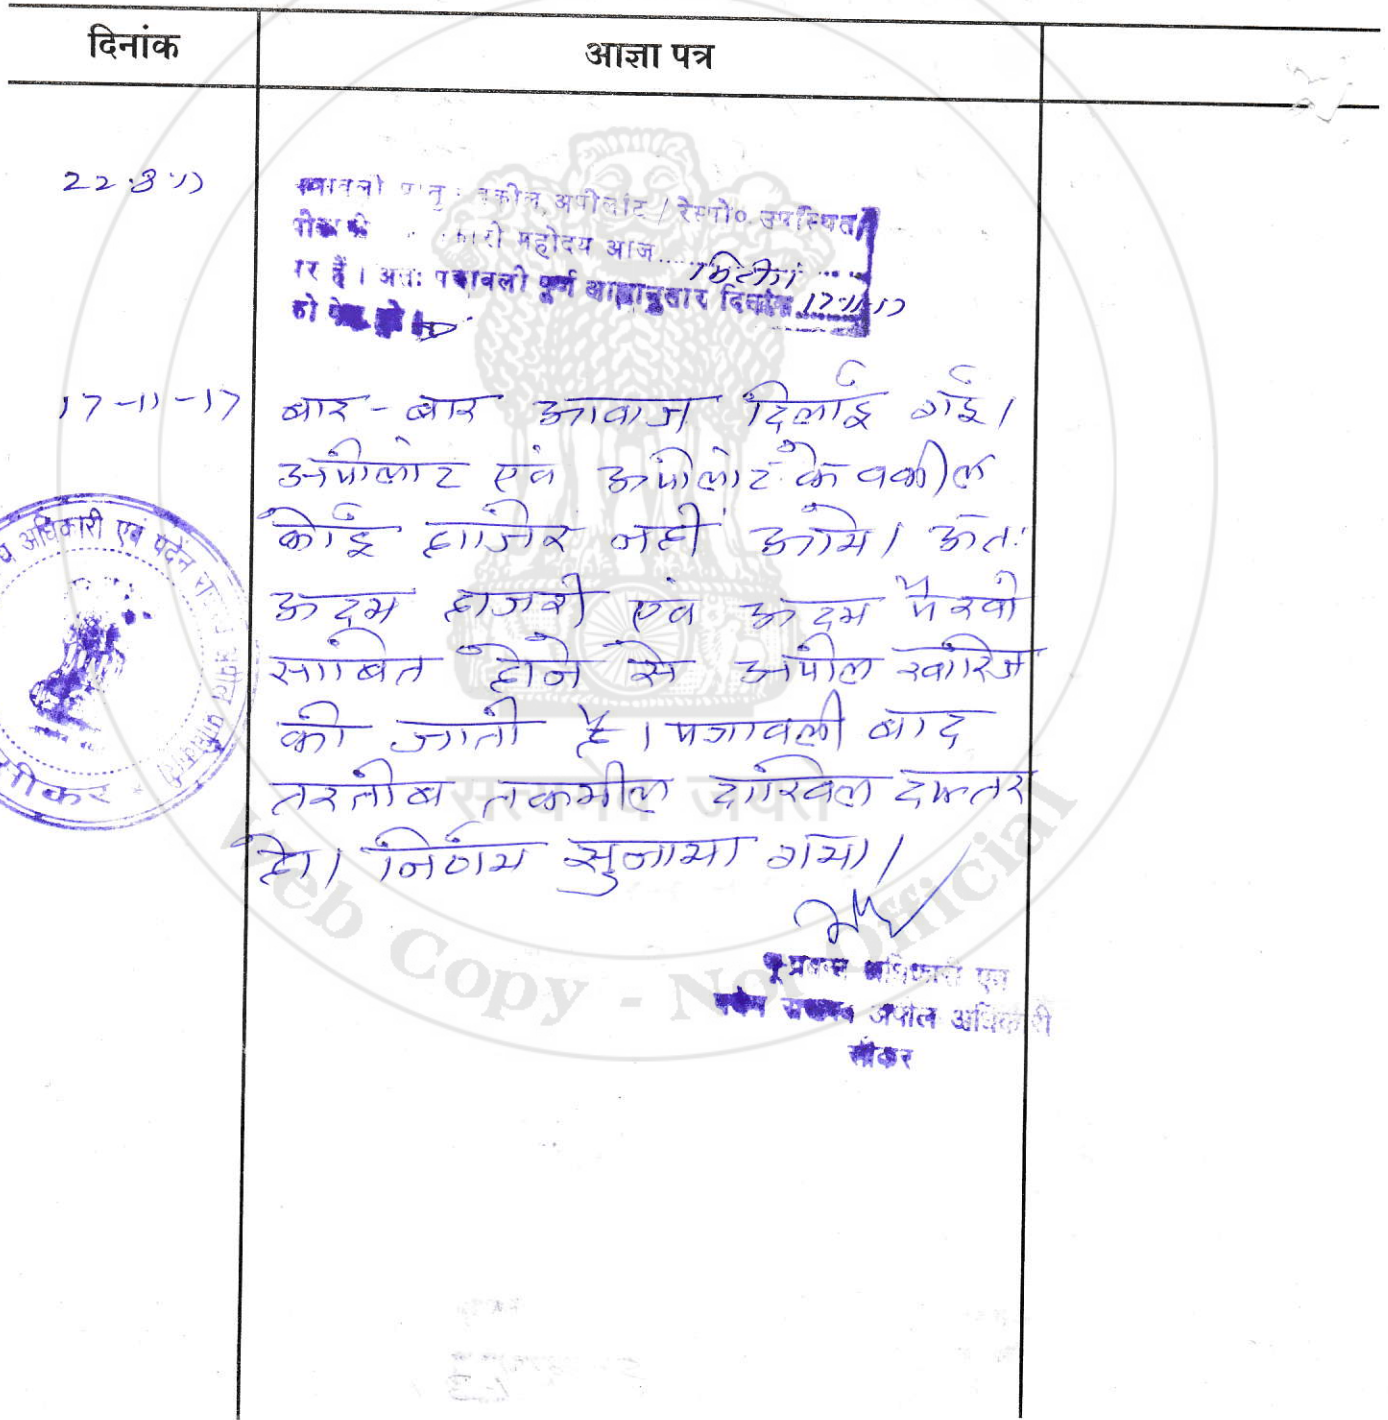 दिनांक आज्ञा पत्र
22.8.17
वकील अपीलांट / रेस्पो० उपस्थित
महोदय आज
रहे हैं । अतः पत्रावली पूर्व आज्ञानुसार दिनांक 17.11.17
को
17-11-17 बार-बार आवाज दिलाई गई।
अपीलांट एवं अपीलांट के वकील
कोई हाजिर नहीं आये। अतः
अदम हाजरी एवं अदम पैरवी
साबित होने से अपील खारिज
की जाती है। पत्रावली बाद
तरतीब तकमील दाखिल दफ्तर
हो। निर्णय सुनाया गया।
भू-प्रबन्ध अधिकारी एवं
पदेन राजस्व अपील अधिकारी
सीकर
अधिकारी एवं पदेन
सीकर
सत्यमेव जयते
Web Copy - Not Official